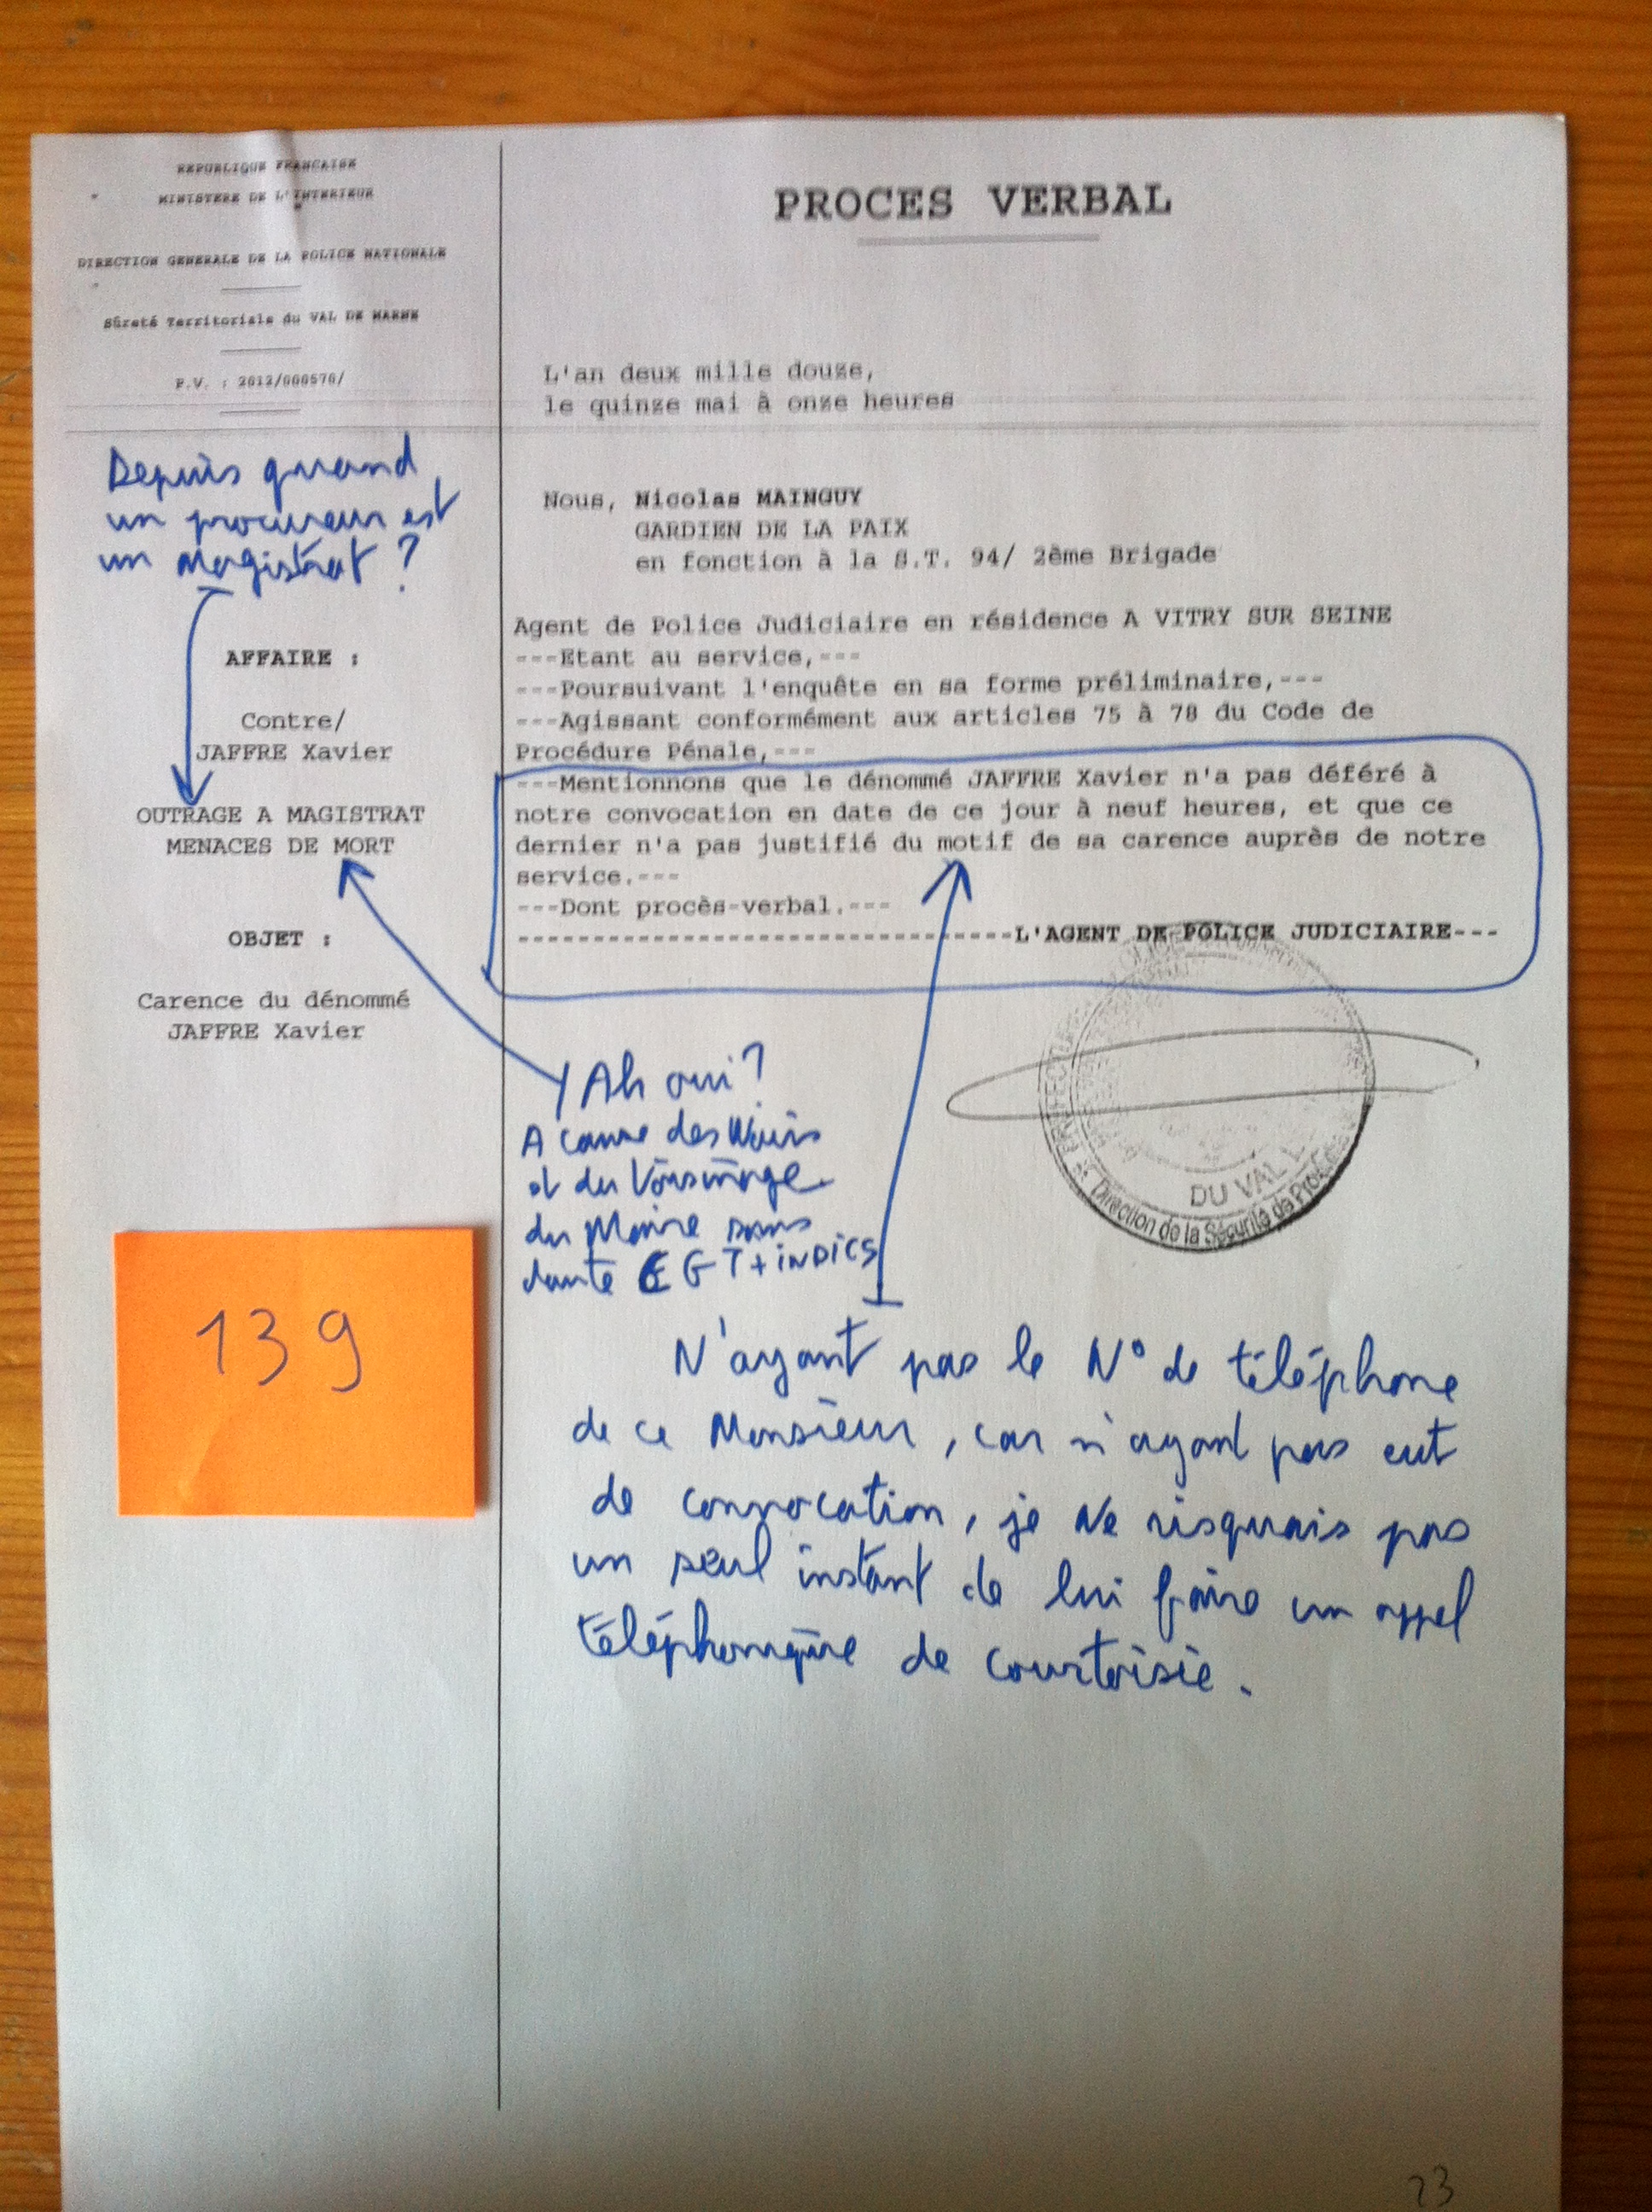 REPUBLIQUE FRANCAISE
MINISTERE DE L'INTERIEUR
DIRECTION GENERALE DE LA POLICE NATIONALE
Sûreté Territoriale du VAL DE MARNE
P.V. : 2012/000570/
PROCES VERBAL
L'an deux mille douze,
le quinze mai à onze heures
Depuis quand
un procureur est
un Magistrat ?
AFFAIRE :
Contre/
JAFFRE Xavier
OUTRAGE A MAGISTRAT
MENACES DE MORT
OBJET :
Carence du dénommé
JAFFRE Xavier
Nous, Nicolas MAINGUY
GARDIEN DE LA PAIX
en fonction à la S.T. 94/ 2ème Brigade
Agent de Police Judiciaire en résidence A VITRY SUR SEINE
---Etant au service,---
---Poursuivant l'enquête en sa forme préliminaire,---
---Agissant conformément aux articles 75 à 78 du Code de
Procédure Pénale,---
---Mentionnons que le dénommé JAFFRE Xavier n'a pas déféré à
notre convocation en date de ce jour à neuf heures, et que ce
dernier n'a pas justifié du motif de sa carence auprès de notre
service.---
---Dont procès-verbal.---
---------------------------------L'AGENT DE POLICE JUDICIAIRE---
DU VAL
Direction de la Sécurité de Proxi
Ah oui ?
A cause des
et du Voisinage
du Maire sans
doute CGT + iNDiCS
139
N'ayant pas le N° de téléphone
de ce Monsieur, car n'ayant pas eut
de convocation, je Ne risquais pas
un seul instant de lui faire un appel
téléphonique de courtoisie.
23